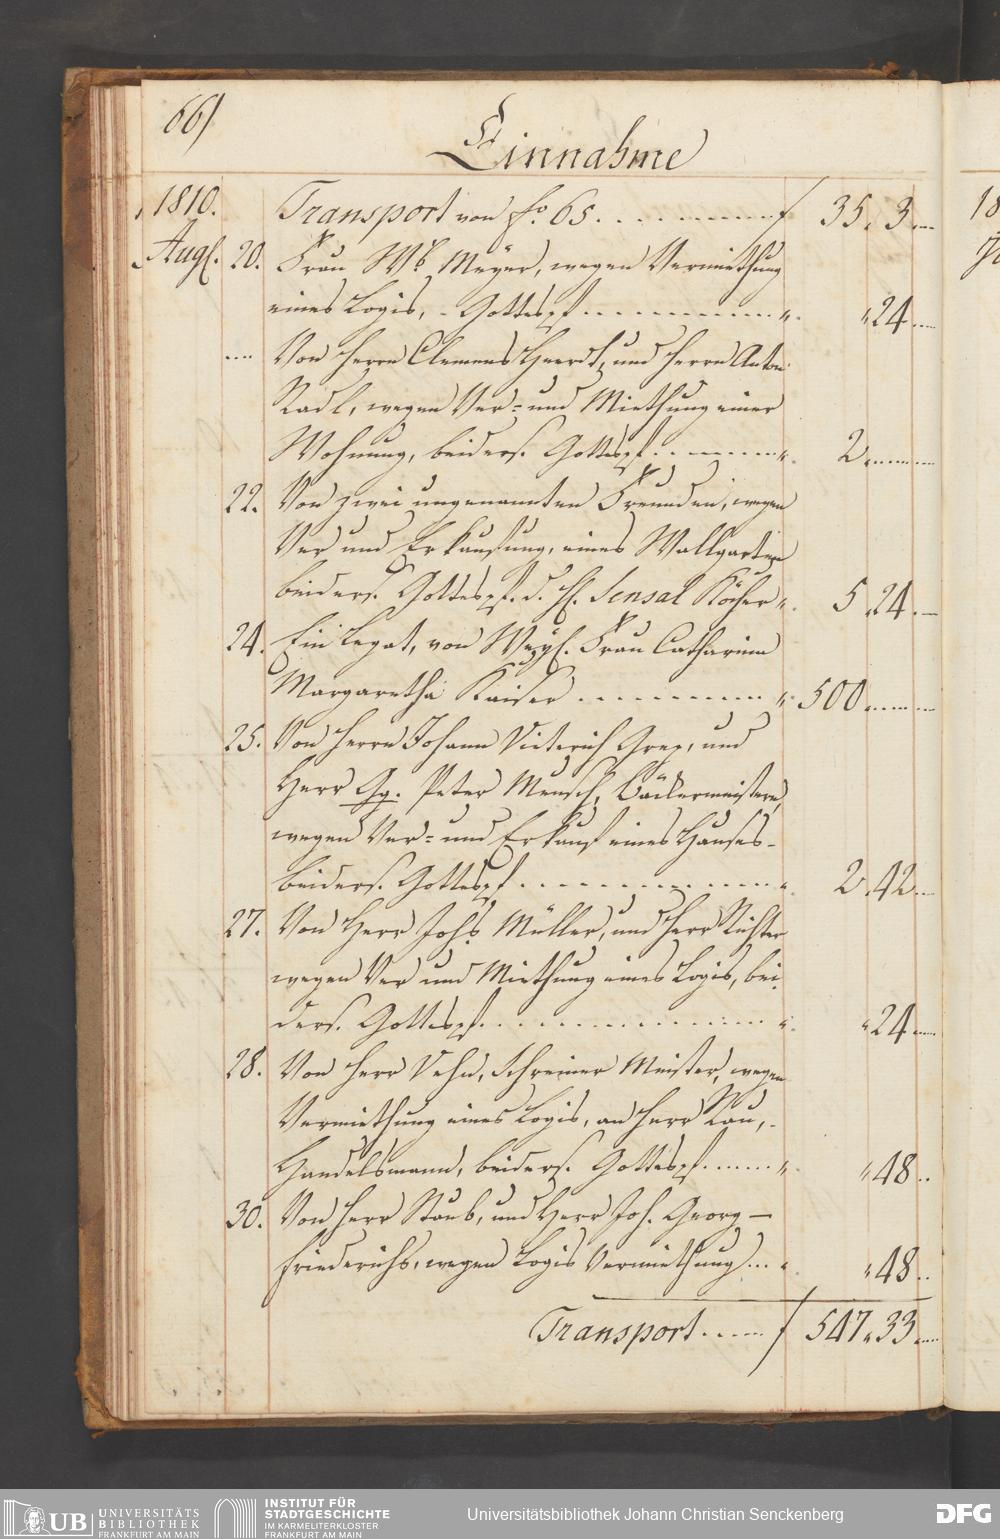 66)
Einnahme
1810. Transport von fo. 65. . . . . . . . . . f 35. 3. ...
Augs. 20. Frau Wb. Meyer, wegen Vermiethung
eines Logis, - Gottespf. . . . . . . . . . . . . " " 24. ...
.... Von Herrn Clemens Heerdt, und Herrn Anton
Radl, wegen Ver= und Miethung einer
Wohnung, beiders. Gottespf. . . . . . . . " 2. ...
22. Von zwei ungenannten Freunden, wegen
Ver und Erkaufung, eines Wallgarten
beiders. Gottespf. d. H. Sensal Köcher " 5. 24. —
24. Ein Legat, von Weyl. Frau Catharina
Margaretha Kaiser . . . . . . . . . . " 500. ...
25. Von Herrn Johann Dieterich und
Herr Gg. Peter Mensch, Bäckermeistere,
wegen Ver= und Erkauf eines Hauses -
beiders. Gottespf. . . . . . . . . . . . . . " 2. 42. ...
27. Von Herr Johs. Müller, und Herr Richter
wegen Ver und Miethung eines Logis, bei-
ders. Gottespf. . . . . . . . . . . . . . . " " 24. ...
28. Von Herr Schreiner Meister, wegen
Vermiethung eines Logis, an Herr Rau, -
Handelsmann, beiders. Gottespf. . . . . . . " " 48. .
30. Von Herr Staub, und Herr Joh. Georg —
Friederichs, wegen Logis Vermiethung . . . " " 48. .
Transport . . . . . . f 547. 33. ...
UB UNIVERSITÄTS
BIBLIOTHEK
FRANKFURT AM MAIN
INSTITUT FÜR
STADTGESCHICHTE
IM KARMELITERKLOSTER
FRANKFURT AM MAIN
Universitätsbibliothek Johann Christian Senckenberg
DFG